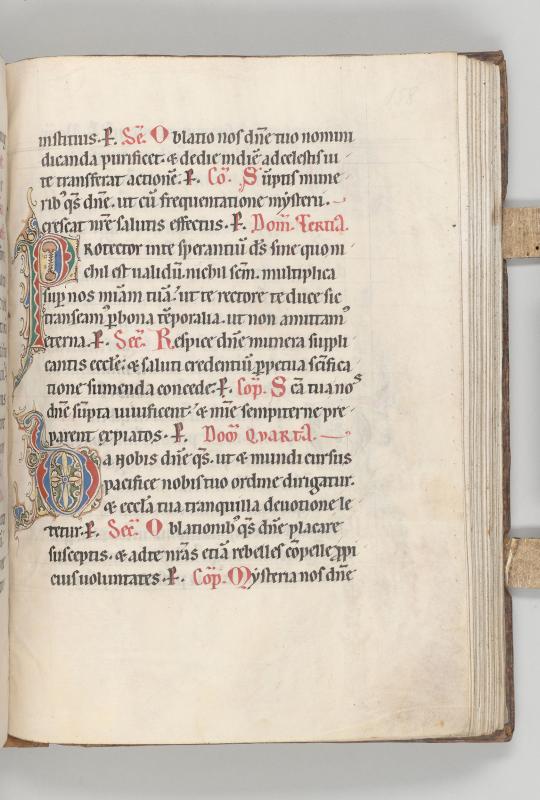 158
institius. P. Sec. Oblatio nos dn̄e tuo nomini
dicanda purificet. & dedie indiē ad celestis ui
te transferat actionē. P. Cō. Sūptis mune
rib; qs̄ dn̄e. ut cū frequentatione mysterii.
crescat nrē salutis effectus. P. Dom̄. Tertia.
Protector in te sperantiū ds̄ sine quo ni
chil est ualidū. nichil sc̄m. multiplica
sup nos mīam tuā. ut te rectore te duce sic
transeam' p bona tēporalia. ut non amittam'
eterna. P. Sec̄. Respice dn̄e munera suppli
cantis eccle. & saluti credentiū ppetua sc̄ifica
tione sumenda concede. P. Cop̄. Sc̄a tua nos
dn̄e sūpta uiuificent. & mīe sempiterne pre
parent expiatos. P. Dom̄ Quarta.
Da nobis dn̄e qs̄. ut & mundi cursus
pacifice nobis tuo ordine dirigatur.
& eccl̄a tua tranquilla deuotione le
tetur. P. Sec̄. Oblationib; qs̄ dn̄e placare
susceptis. & ad te nr̄as etiā rebelles cōpelle ppi
cius uoluntates. P. Cop̄. Mysteria nos dn̄e